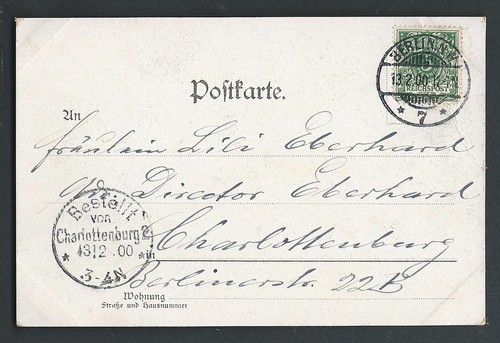 BERLIN, N.W.
13.2.00.1-2N
REICHSPOST
* 7 *
Postkarte.
An
Fräulein Lili Eberhard
Director Eberhard
Bestellt
von
Charlottenburg 2
13|2.00
3-4N
in
Charlottenburg
Berlinerstr. 22b
Wohnung
Straße und Hausnummer